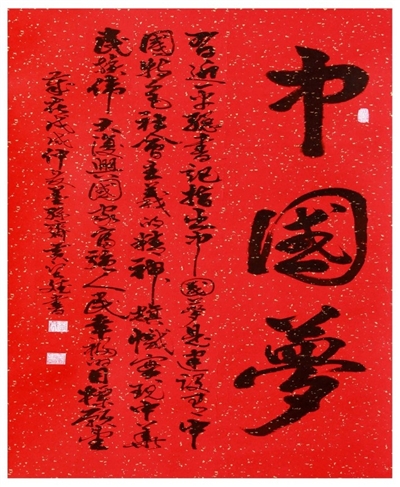 中國夢
習近平總書記指出中國夢是建設有中
國特色社會主義的精神旗幟實現中華
民族偉大復興國家富強人民幸福目標願望
歲在戊戌仲夏書